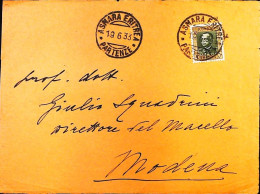 ASMARA ERITREA
19.6.33
* PARTENZE *
ASMARA ERITREA
* PARTENZE *
prof. dott.
Giulio Squadrini
direttore del Macello
Modena